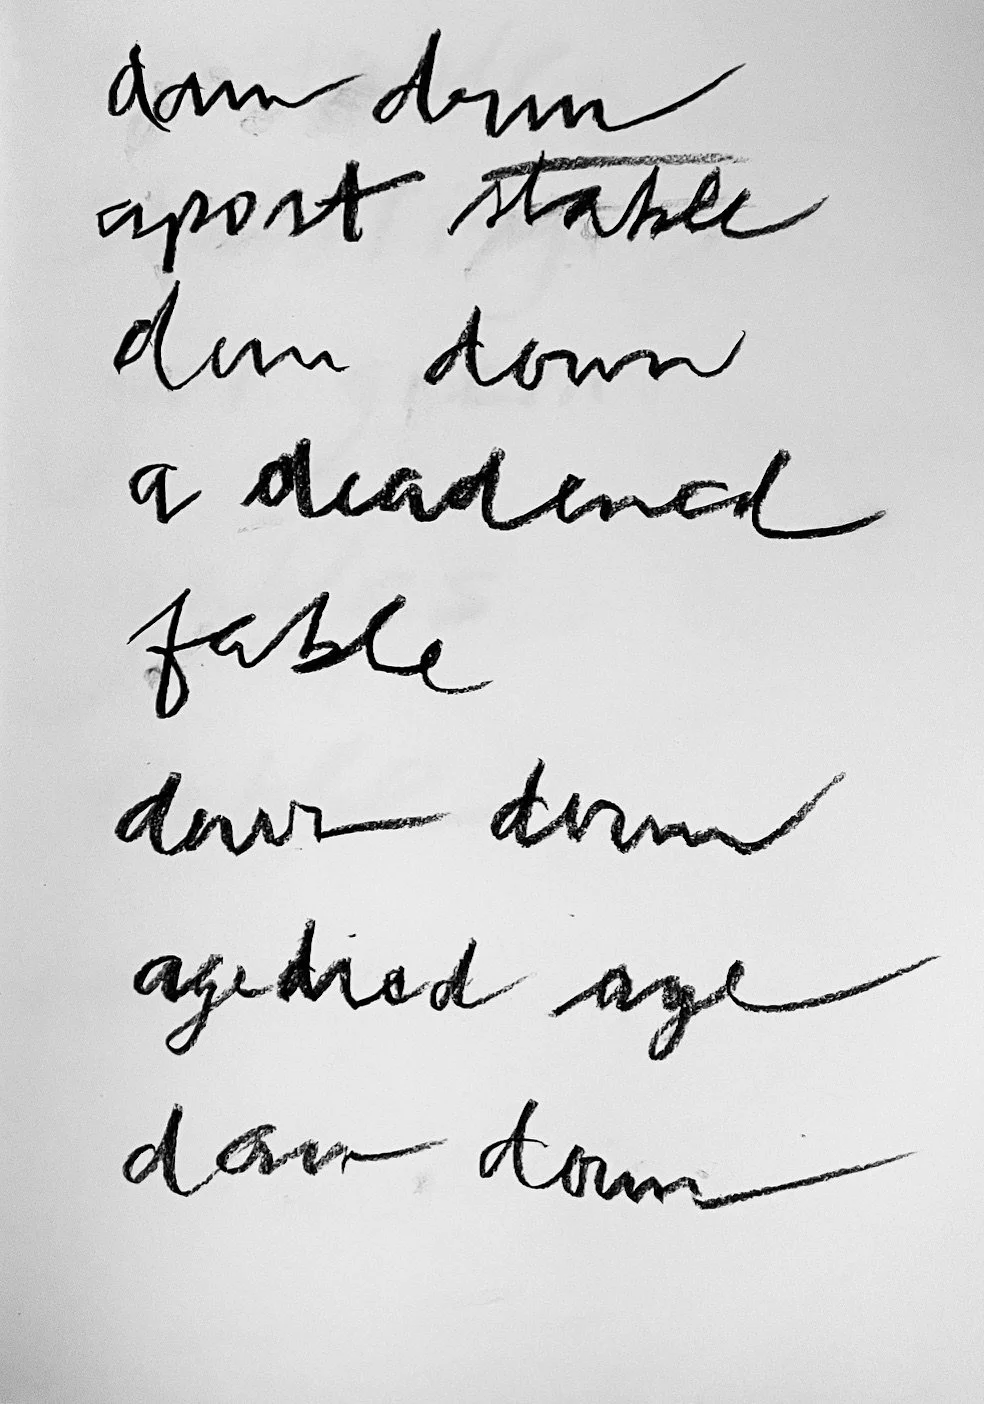 down down
apost stable
down down
a deadened
fable
down down
agedried age
down down